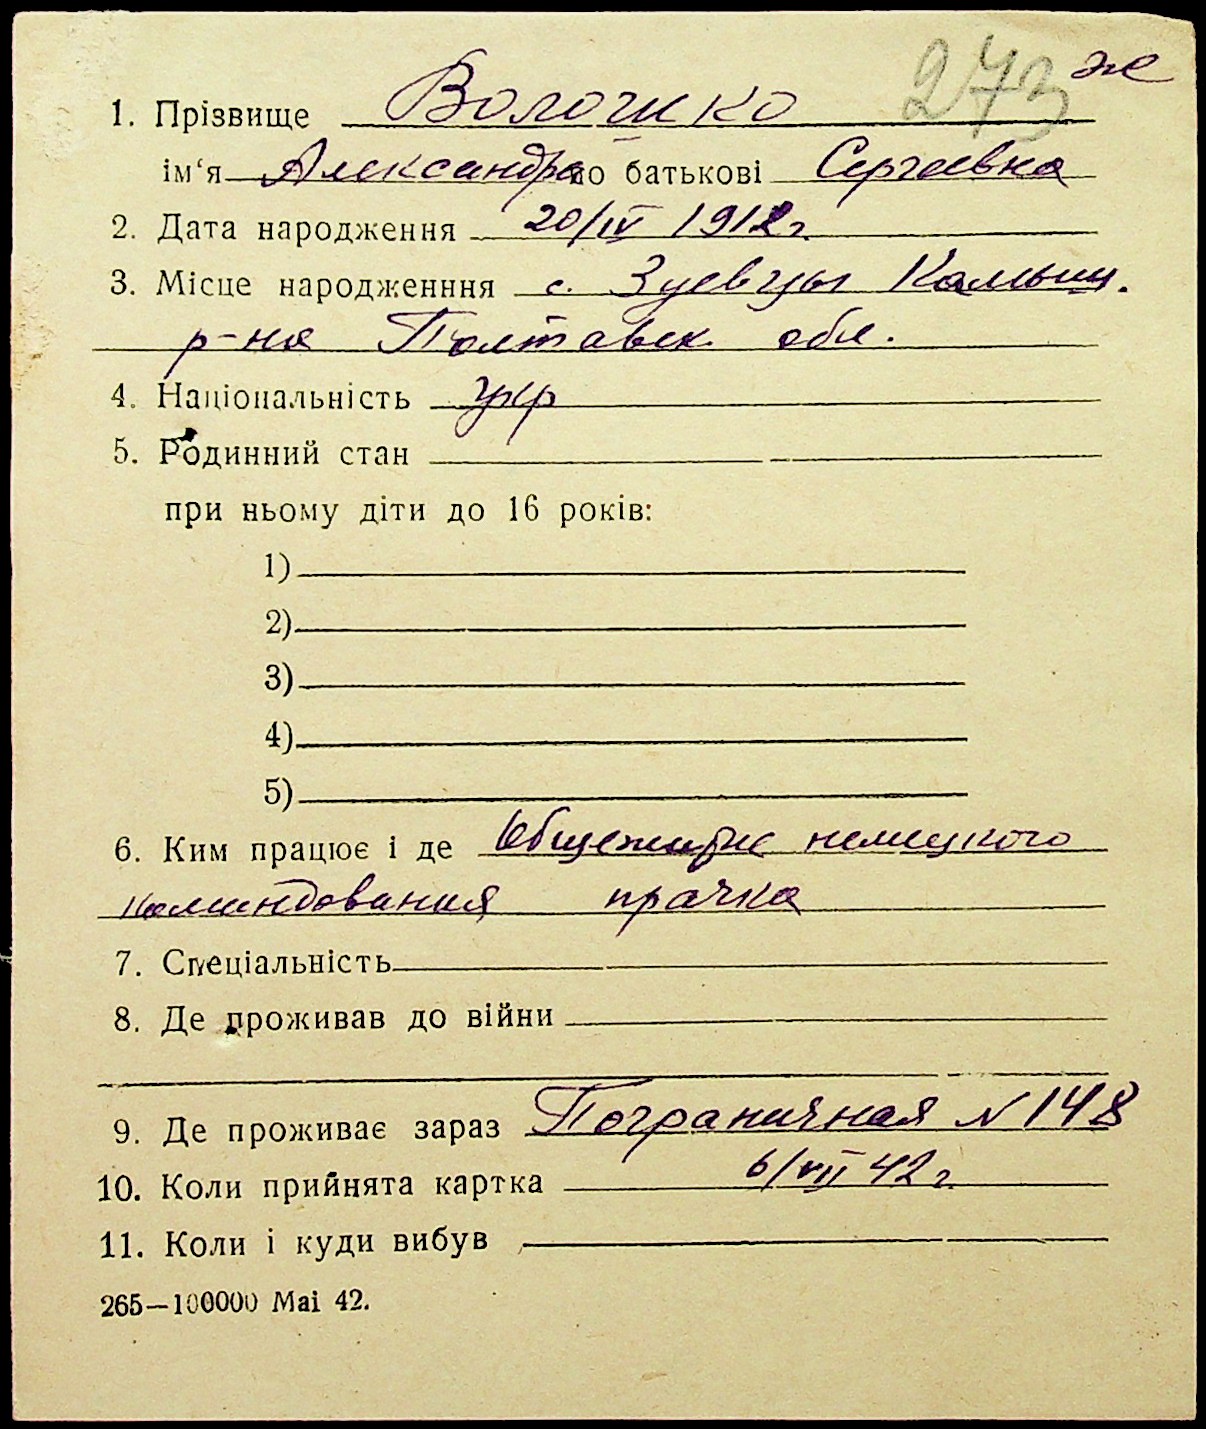 273 ж
1. Прізвище Волошко
ім‘я Александра по батькові Сергеевна
2. Дата народження 20/IV 1912 г.
3. Місце народженння с. Зуевцы Камыш.
р-на Полтавск. обл.
4. Національність укр
5. Родинний стан
при ньому діти до 16 років:
1)
2)
3)
4)
5)
6. Ким працює і де Общежитие немецкого
командования прачка
7. Спеціальність
8. Де проживав до війни
9. Де проживає зараз Пограничная N 148
10. Коли прийнята картка 6/VII 42 г.
11. Коли і куди вибув
265—100000 Mai 42.